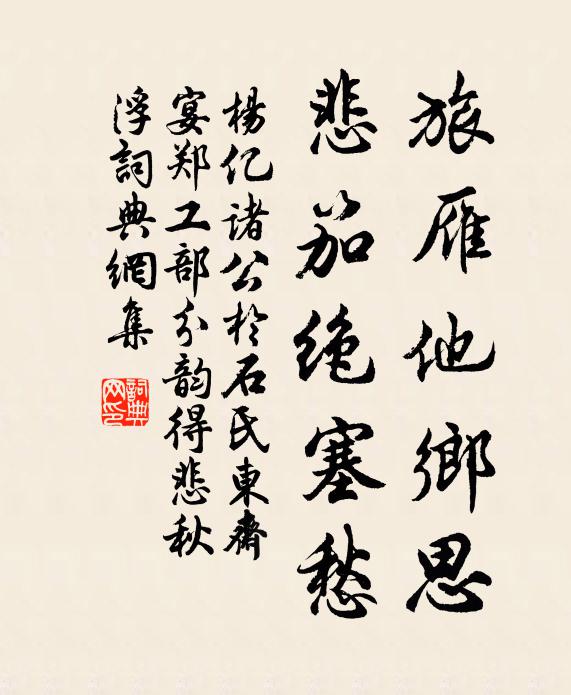 旅雁他鄉思
悲笳絶塞愁
楊亿諸公於石氏東齋
宴郑工部分韵得悲秋
浮詞典網集
詞典网印